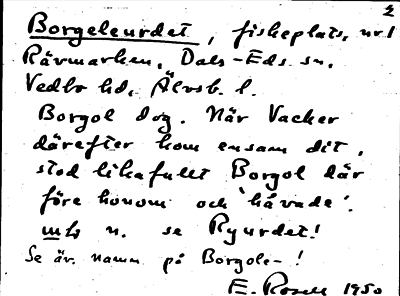 2
Borgeleurdet, fiskeplats, nr 1
Rävmarken, Dals-Eds sn.
Vedbo hd, Älvsb. l.
Borgol dog. När Vacker
därefter kom ensam dit,
stod likafullt Borgol där
före honom och 'håvade'.
n. se Ryurdet!
Se äv. namn på Borgole- !
E. Rosell 1950